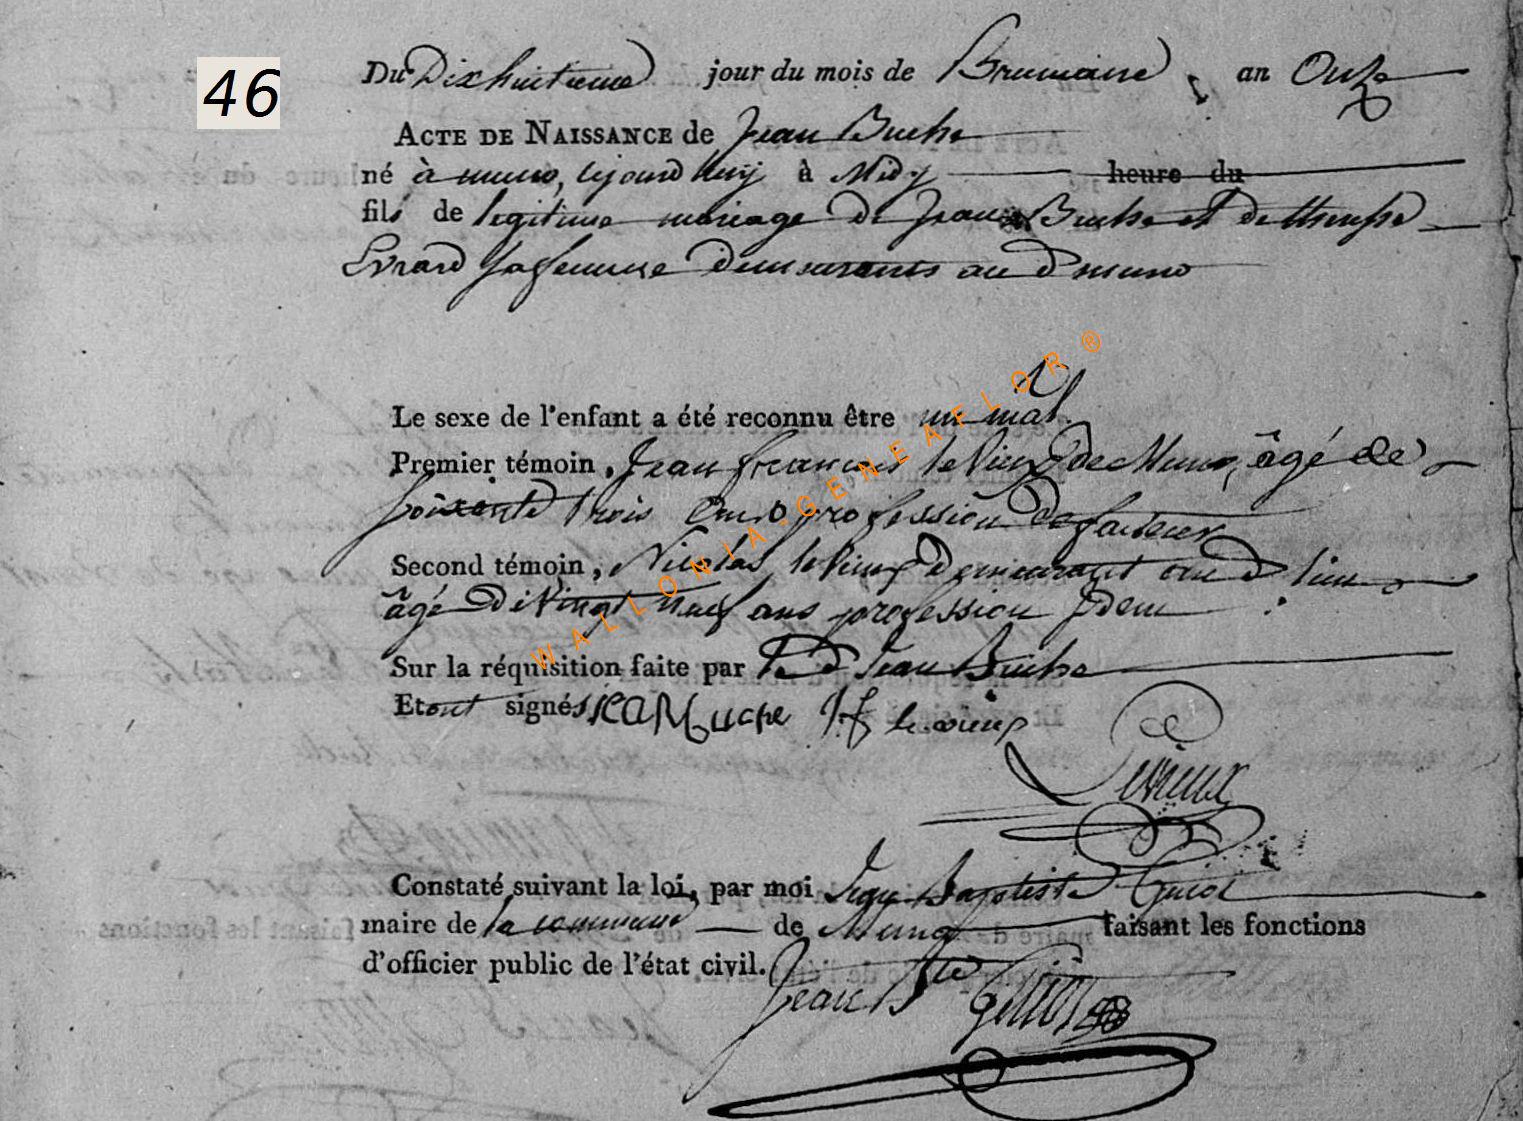 46
Du Dixhuitieme jour du mois de Brumaire, an Onze
ACTE DE NAISSANCE de Jean Buche
né à muno, cejourd huy à Midy heure du
fils de legitime mariage de Jean Buche et de therese
Evrard sa femme demeurants au d muno
Le sexe de l'enfant a été reconnu être un mal
Premier témoin, Jean francois le vieux de Muno, âgé de
soixente trois ans profession de facteur
Second témoin, Nicolas le vieux demeurant au d lieu
âgé de vingt neuf ans profession idem
Sur la réquisition faite par le d Jean Buche
Etont signés Jean Buche J f le vieux
Levieux
Constaté suivant la loi, par moi Jean Baptiste Guiot
maire de la commune de Muno faisant les fonctions
d'officier public de l'état civil.
Jean Bte Guiot
WALLONIA-GENEAFLOR®